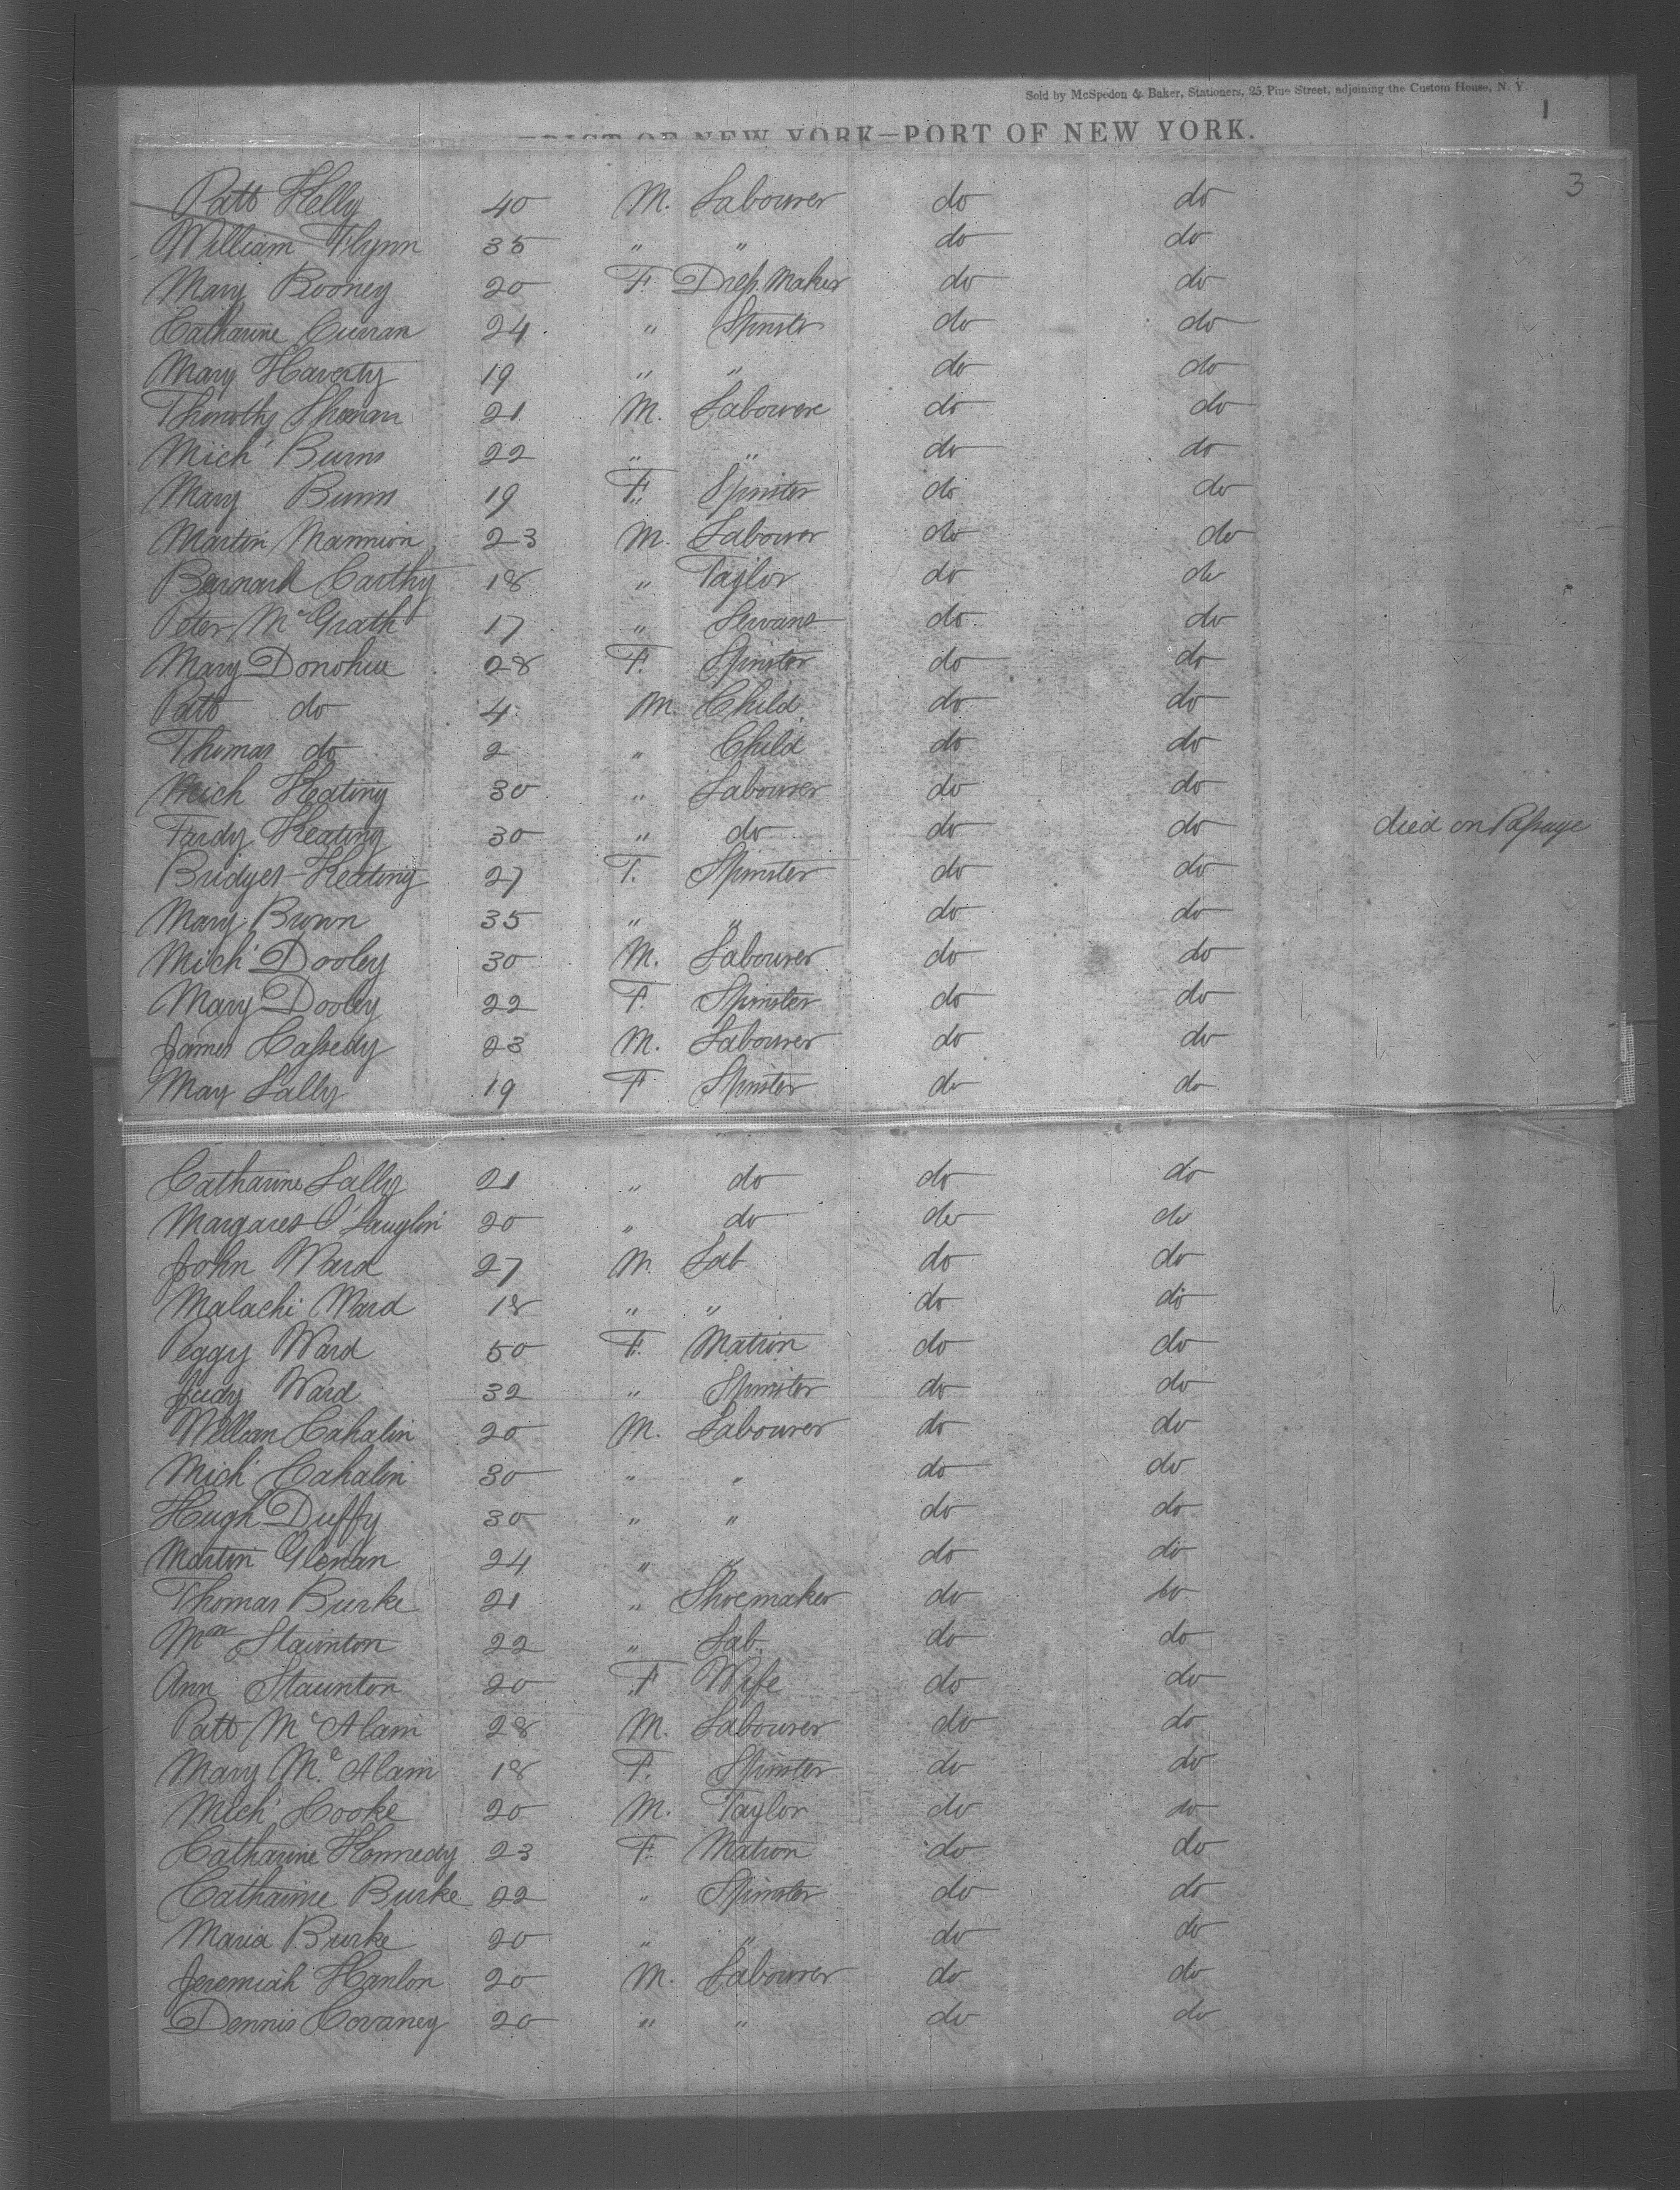 Sold by McSpedon & Baker, Stationers, 25 Pine Street, adjoining the Custom House, N. Y.
1
DIST OF NEW YORK—PORT OF NEW YORK.
3
Patt Kelly 40 M. Labourer do do
William Flynn 35 " " do do
Mary Rooney 20 F. Dress Maker do do
Catharine Curran 24 " Spinster do do
Mary Haverty 19 " " do do
Thimothy Sheenan 21 M. Labourer do do
Mich' Burns 22 " " do do
Mary Burns 19 F. Spinster do do
Martin Mannion 23 M. Labourer do do
Bernard Carthy 18 " Taylor do do
Peter McGrath 17 " Servant do do
Mary Donohue 28 F. Spinster do do
Patt do 4 M. Child do do
Thomas do 2 " Child do do
Mich Keating 30 " Labourer do do
Fardy Keating 30 " do do do died on Passage
Bridget Keating 27 F. Spinster do do
Mary Brown 35 " " do do
Mich' Dooley 30 M. Labourer do do
Mary Dooley 22 F. Spinster do do
James Cassedy 23 M. Labourer do do
Mary Lally 19 F Spinster do do
Catharine Lally 21 " do do do
Margaret O'Lauglin 20 " do do do
John Ward 27 M. Lab. do do
Malachi Ward 18 " " do do
Peggy Ward 50 F. Matron do do
Judy Ward 32 " Spinster do do
William Cahalin 20 M. Labourer do do
Mich' Cahalin 30 " " do do
Hugh Duffy 30 " " do do
Martin Glenan 24 " " do do
Thomas Burke 21 " Shoemaker do do
Staunton 22 " Lab. do do
Ann Staunton 20 F Wife do do
Patt McAlam 28 M. Labourer do do
Mary Mc.Alam 18 F. Spinster do do
Mich' Cooke 20 M. Taylor do do
Catharine Kennedy 23 F. Matron do do
Catharine Burke 22 " Spinster do do
Maria Burke 20 " " do do
Jeremiah Hanlon 20 M. Labourer do do
Dennis Covaney 20 " " do do